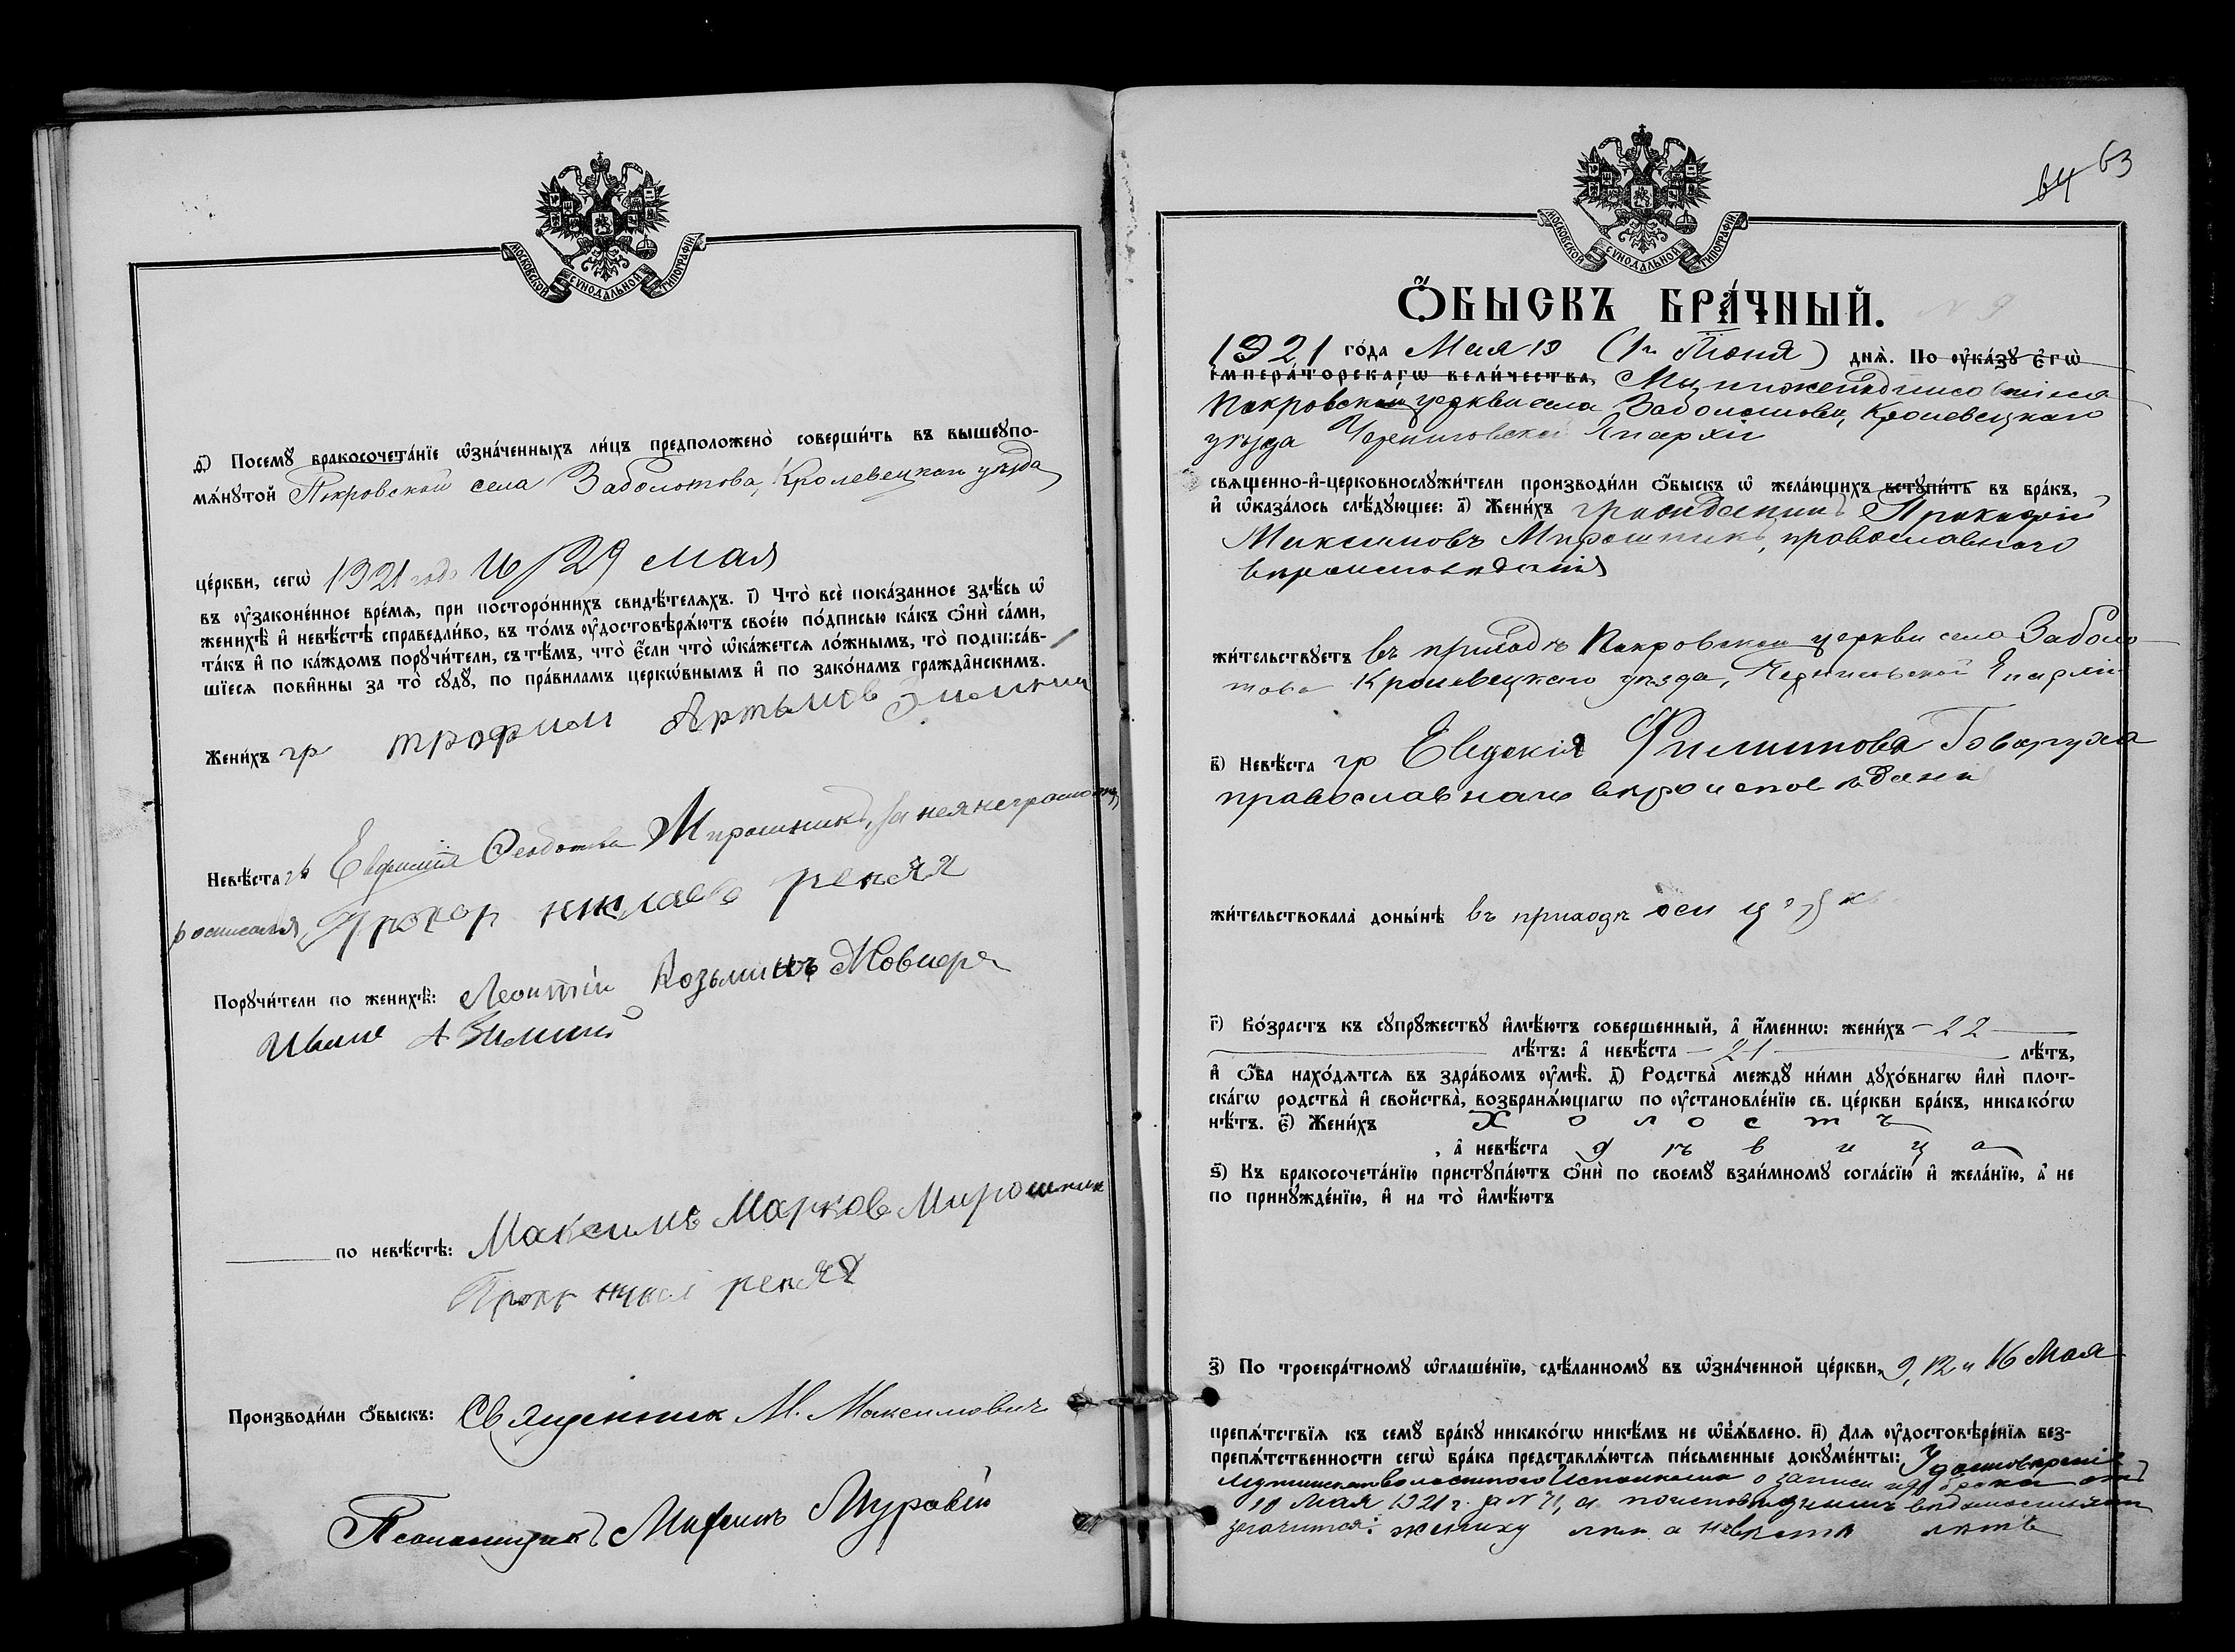 МОСКОВСКОЙ СѴНОДАЛЬНОЙ ТИПОГРАФІИ
ѳ҃) Посемꙋ̀ бракосочета́нїе ѡ҆зна́ченныхъ ли́цъ предположено̀ соверши́ть въ вышеꙋпо-
мѧ́нꙋтой Покровской села Заболотова, Кролевецкаго уѣзда
це́ркви, сегѡ̀ 1921 года 16/29 мая
въ ᲂу҆зако́не́нное вре́мѧ, при посторо́ннихъ свидѣ́телѧхъ. і҃) Что̀ всѐ пока́занное здѣ́сь ѡ҆
женихѣ̀ и҆ невѣ́стѣ справедли́во, въ то́мъ ᲂу҆достовѣрѧ́ютъ свое́ю по́дписью ка́къ ѻ҆нѝ са́ми,
та́къ и҆ по ка́ждомъ порꙋчи́тели, съ тѣ́мъ, что̀ є҆́сли что̀ ѡ҆ка́жетсѧ ло́жнымъ, то̀ подписа́в-
шїесѧ пови́нны за то̀ сꙋдꙋ̀, по пра́виламъ церко́внымъ и҆ по зако́намъ гражда́нскимъ.
Жени́хъ гр трофим Артымов
Невѣ́ста гр Евфимія Федотова Мирошникъ, за нея неграмотн
росписался Прохор
Порꙋчи́тели по женихѣ̀: Леонтій Козьминъ
Иване А Зимний
по невѣ́стѣ: Максимъ Марков Мирошник
Производи́ли ѻ҆́быскъ: Священник М. Максимович
Псаломщикъ Муравій
64 63
МОСКОВСКОЙ СѴНОДАЛЬНОЙ ТИПОГРАФІИ
Ѻ҆́БЫСКЪ БРА́ЧНЫЙ. N 9
1921 го́да Мая 19 (1го Іюня) днѧ̀. По ᲂу҆ка́зꙋ Є҆гѡ̀
І҆мпера́торскагѡ вели́чества, Мы нижеподписавшіеся
Покровской церкви села Заболотова, Кролевецкаго
уѣзда Черниговской Епархіи
свѧще́нно-и҆-церковнослꙋжи́тели производи́ли ѻ҆́быскъ ѡ҆ жела́ющихъ встꙋпи́ть въ бра́къ,
и҆ ѡ҆каза́лось слѣ́дꙋющее: а҃) Жени́хъ гражданинъ Прокофій
Максимовъ Мирошникъ, православнаго
вѣроисповѣданія
жи́тельствꙋетъ въ приходѣ Покровской церкви села Заболо
това Кролевецкаго уѣзда, Черниговской Епархіи
в҃) Невѣ́ста гр Евдокія Филиппова
православнаго вѣроисповѣданія
жи́тельствовала доны́нѣ въ приходѣ
г҃) Во́зрастъ къ сꙋпрꙋ́жествꙋ и҆мѣ́ютъ соверше́нный, а҆ и҆́менно: жени́хъ – 22
лѣ́тъ: а҆ невѣ́ста – 21 лѣ́тъ,
и҆ ѻ҆́ба нахо́дѧтсѧ въ здра́вомъ ᲂу҆мѣ̀. д҃) Родства̀ междꙋ̀ ни́ми дꙋхо́внагѡ и҆лѝ плот-
ска́гѡ родства̀ и҆ сво́йства̀, возбранѧ́ющагѡ по ᲂу҆становле́нїю св. це́ркви бра́къ, никако́гѡ
нѣ́тъ. є҃) Жени́хъ Холостъ
, а҆ невѣ́ста дѣвица
ѕ҃) Къ бракосочета́нїю пристꙋпа́ютъ ѻ҆нѝ по своемꙋ̀ взаи́мномꙋ согла́сїю и҆ жела́нїю, а҆ не
по принꙋжде́нїю, и҆ на то̀ и҆мѣ́ютъ
з҃) По троекра́тномꙋ ѡ҆глаше́нїю, сдѣ́ланномꙋ въ ѡ҆зна́ченной це́ркви, 9, 12 и 16 Мая
препѧ́тствїѧ къ семꙋ̀ бра́кꙋ никако́гѡ никѣ́мъ не ѡ҆б̾ѧ́влено. и҃) Длѧ ᲂу҆достовѣре́нїѧ без-
препѧ́тственности сегѡ̀ бра́ка представлѧ́ютсѧ пи́сьменные докꙋме́нты: Удостовѣреніе
волостного Исполкома о записи брака отъ
10 Мая 1921 г. за N 71, а по исповѣднымъ вѣдомостямъ
значится: жениху лѣтъ а невѣстѣ лѣтъ